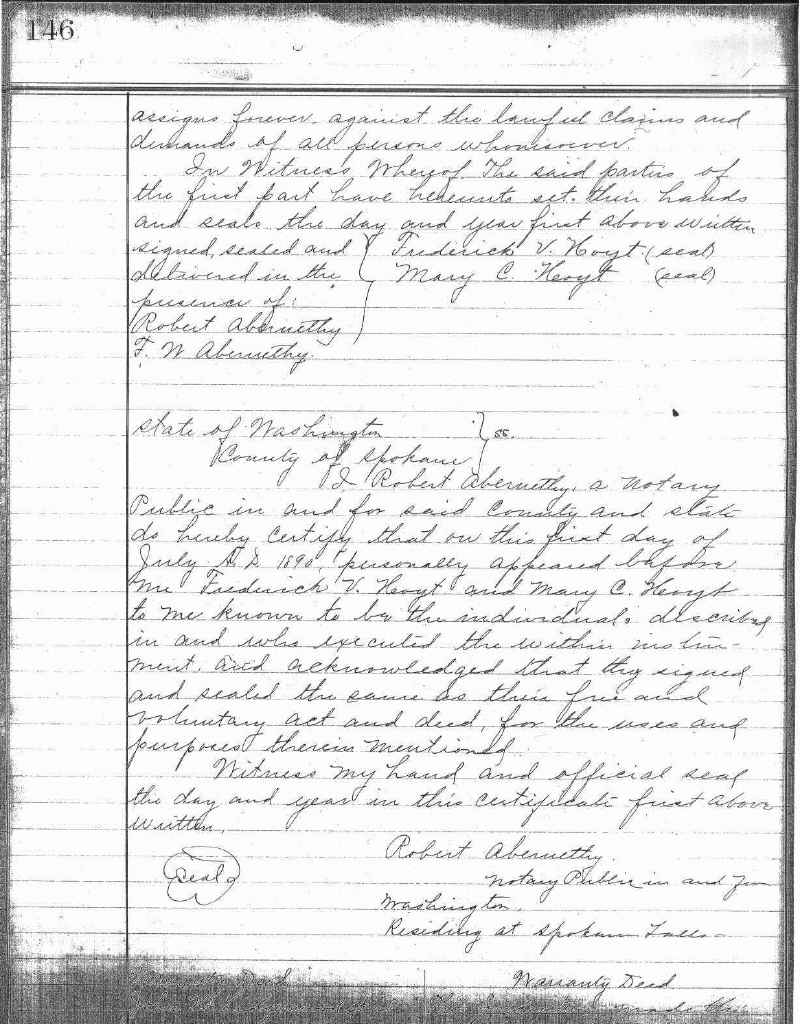 146
assigns forever. against the lawful claims and
demands of all persons whomsoever.
In Witness Whereof. The said parties of
the first part have hereunto set their hands
and seals the day and year first above written
signed, sealed and } Frederick V. Hoyt (seal)
delivered in the Mary C. Hoyt (seal)
presence of:
Robert Abernethy
F. W Abernethy.
State of Washington } ss.
County of Spokane
I Robert Abernethy, a Notary
Public in and for said County and state
do hereby certify that on this first day of
July A.D. 1890, personally appeared before
me Frederick V. Hoyt and Mary C. Hoyt
to me known to be the individuals described
in and who executed the within instru-
ment. and acknowledged that they signed
and sealed the same as their free and
voluntary act and deed, for the uses and
purposes therein mentioned.
Witness my hand and official seal
the day and year in this certificate first above
written.
Robert Abernethy.
(seal) Notary Public in and for
Washington.
Residing at Spokane Falls-
Deed Warranty Deed